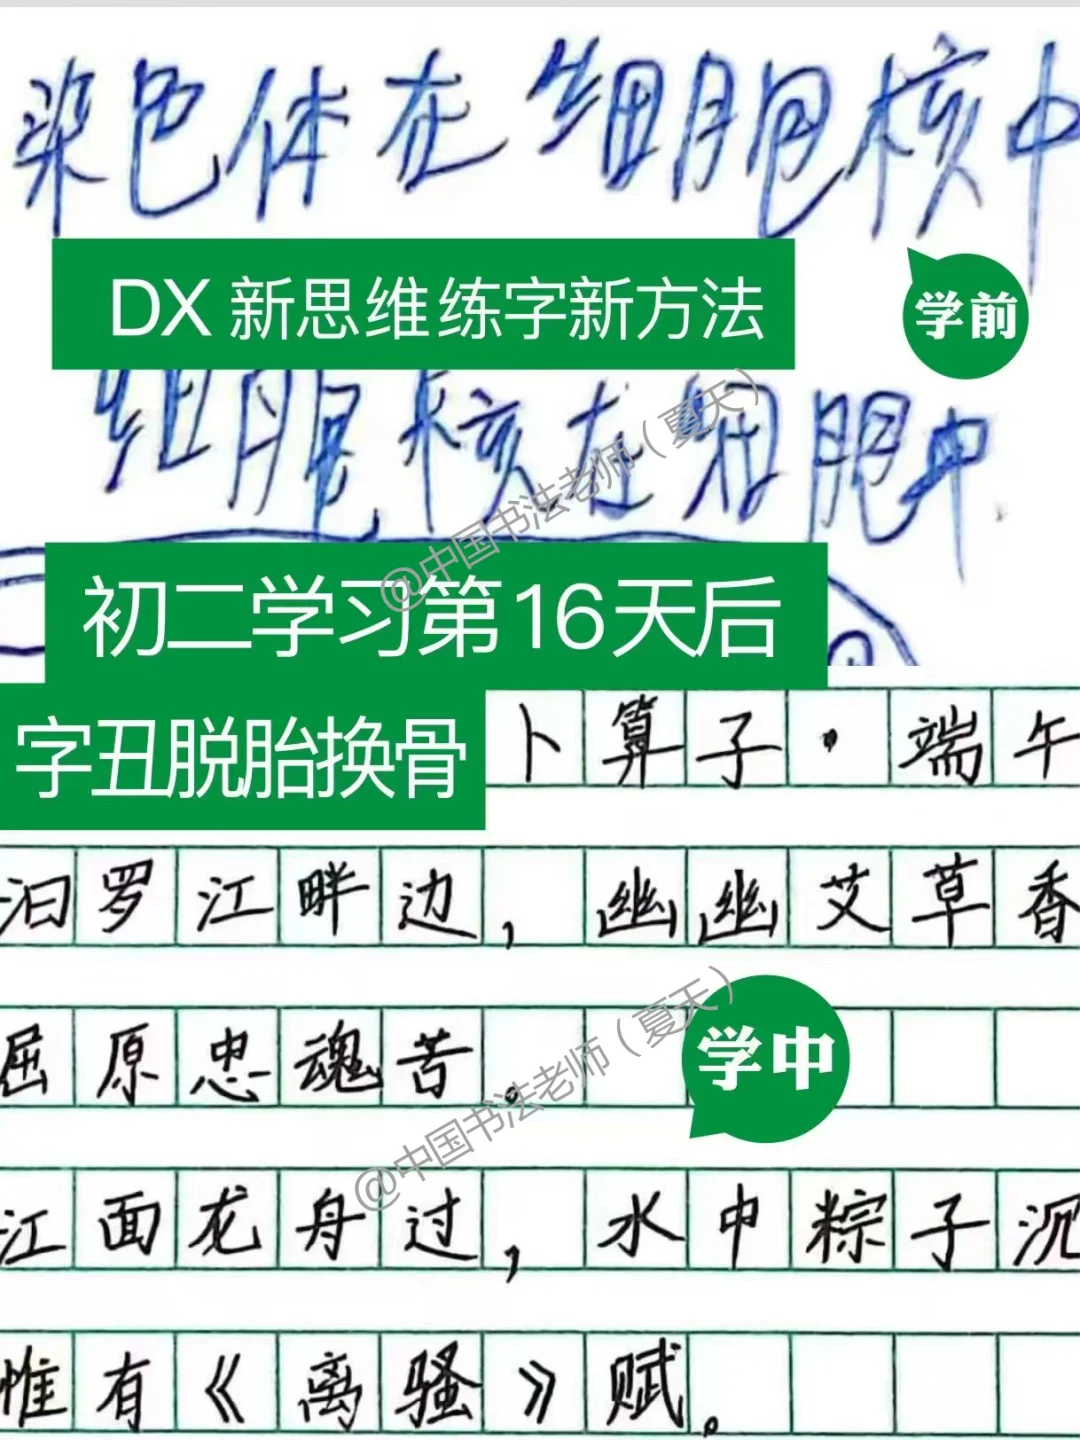 染色体在细胞核中
DX 新思维练字新方法
学前
细胞核在细胞中.
@中国书法老师（夏天）
初二学习第16天后
字丑脱胎换骨
卜算子·端午
汨罗江畔边，幽幽艾草香
屈原忠魂苦。
学中
@中国书法老师（夏天）
江面龙舟过，水中粽子沉
惟有《离骚》赋。